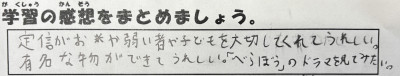 学習の感想をまとめましょう。
がくしゅう かんそう
定信がお米や弱い者や子どもを大切してくれてうれしい。
有名な物ができてうれしい。「べらぼう」のドラマを見てみたい。